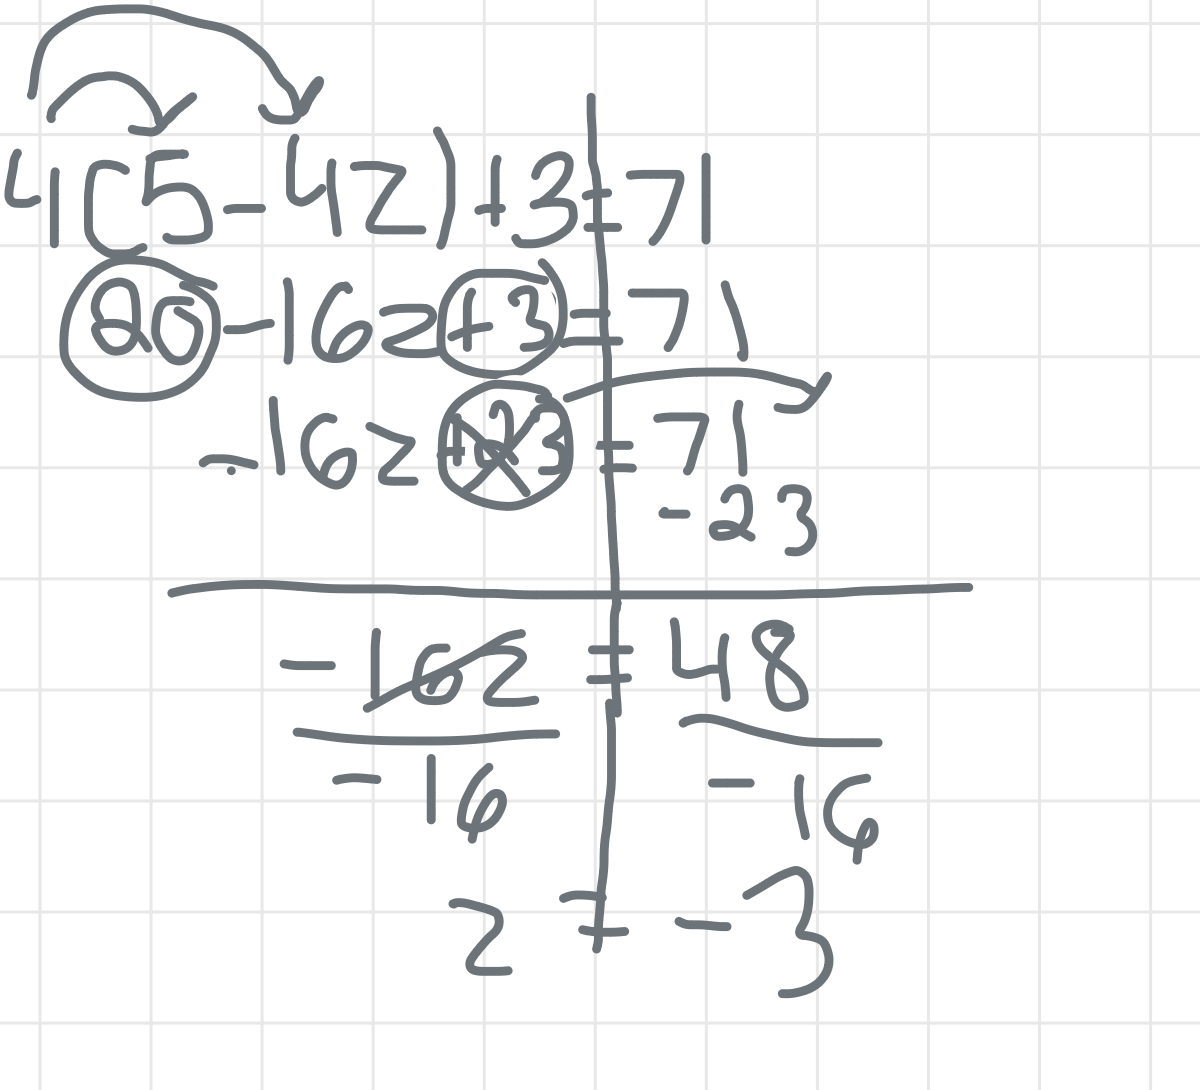 4(5-4z)+3=71
20-16z+3=71
-16z+23=71
-23
-16z=48
-16 -16
z=-3